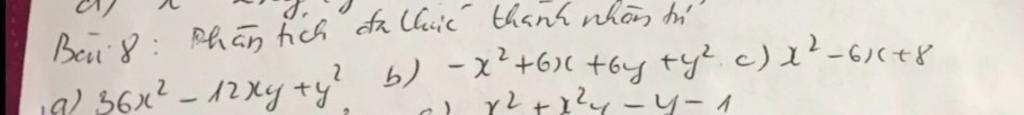 Bài 8 : Phân tích đa thức thành nhân tử
a) 36x² - 12xy + y² b) -x² + 6x + 6y + y² c) x² - 6x + 8
x² + x²y - y - 1